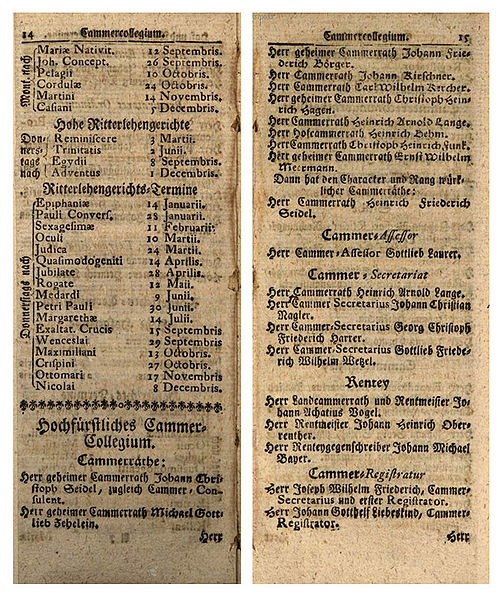 14 Cammercollegium.
Mont. nach
Mariæ Nativit. 12 Septembris.
Joh. Concept. 26 Septembris.
Pelagii 10 Octobris.
Cordulæ 24 Octobris.
Martini 14 Novembris.
Casiani 5 Decembris.
Hohe Ritterlehengerichte
Donnerstags nach
Reminiscere 3 Martii.
Trinitatis 2 Junii.
Egydii 8 Septembris.
Adventus 1 Decembris.
Ritterlehengerichts-Termine
Donnerstags nach
Epiphaniæ 14 Januarii.
Pauli Convers. 28 Januarii.
Sexagesimæ 11 Februarii.
Oculi 10 Martii.
Judica 24 Martii.
Quasimodogeniti 14 Aprilis.
Jubilate 28 Aprilis.
Rogate 12 Maii.
Medardi 9 Junii.
Petri Pauli 30 Junii.
Margarethæ 14 Julii.
Exaltat. Crucis 15 Septembris
Wenceslai 29 Septembris
Maximiliani 13 Octobris.
Crispini 27 Octobris.
Ottomari 17 Novembris
Nicolai 8 Decembris.
Hochfürstliches Cammer-
Collegium.
Cammerräthe:
Herr geheimer Cammerrath Johann Chri-
stoph Seidel, zugleich Cammer-Con-
sulent.
Herr geheimer Cammerrath Michael Gott-
lieb Zehelein.
Herr
Cammercollegium. 15
Herr geheimer Cammerrath Johann Frie-
derich Börger.
Herr Cammerrath Johann Kirschner.
Herr Cammerrath Carl Wilhelm Kercher.
Herr geheimer Cammerrath Christoph Hein-
rich Hagen.
Herr Cammerrath Heinrich Arnold Lange.
Herr Hofcammerrath Heinrich Behm.
Herr Cammerrath Christoph Heinrich Funk.
Herr geheimer Cammerrath Ernst Wilhelm
Meermann.
Dann hat den Character und Rang würk-
licher Cammerräthe:
Herr Cammerrath Heinrich Friederich
Seidel.
Cammer-Assessor
Herr Cammer-Assessor Gottlieb Laurer.
Cammer-Secretariat
Herr Cammerrath Heinrich Arnold Lange.
Herr Cammer Secretarius Johann Christian
Nagler.
Herr Cammer-Secretarius Georg Christoph
Friederich Harter.
Herr Cammer-Secretarius Gottlieb Friede-
rich Wilhelm Wetzel.
Rentey
Herr Landcammerrath und Rentmeister Jo-
hann Achatius Vogel.
Herr Rentmeister Johann Heinrich Ober-
renther.
Herr Renteygegenschreiber Johann Michael
Bayer.
Cammer-Registratur
Herr Joseph Wilhelm Friederich, Cammer-
Secretarius und erster Registrator.
Herr Johann Gotthelf Liebeskind, Cammer-
Registrator.
Herr